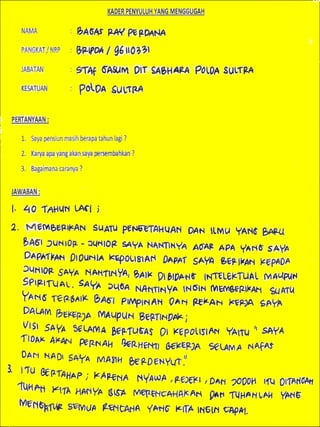 KADER PENYULUH YANG MENGGUGAH
NAMA : BAGAS RAY PERDANA
PANGKAT / NRP : BRIPDA / 96110331
JABATAN : STAF GASUM DIT SABHARA POLDA SULTRA
KESATUAN : POLDA SULTRA
PERTANYAAN :
1. Saya pensiun masih berapa tahun lagi ?
2. Karya apa yang akan saya persembahkan ?
3. Bagaimana caranya ?
JAWABAN :
1. 40 TAHUN LAGI ;
2. MEMBERIKAN SUATU PENGETAHUAN DAN ILMU YANG BARU
BAGI JUNIOR - JUNIOR SAYA NANTINYA AGAR APA YANG SAYA
DAPATKAN DIDUNIA KEPOLISIAN DAPAT SAYA BERIKAN KEPADA
JUNIOR SAYA NANTINYA, BAIK DIBIDANG INTELEKTUAL MAUPUN
SPIRITUAL. SAYA JUGA NANTINYA INGIN MEMBERIKAN SUATU
YANG TERBAIK BAGI PIMPINAN DAN REKAN KERJA SAYA
DALAM BEKERJA MAUPUN BERTINDAK ;
VISI SAYA SELAMA BERTUGAS DI KEPOLISIAN YAITU " SAYA
TIDAK AKAN PERNAH BERHENTI BEKERJA SELAMA NAFAS
DAN NADI SAYA MASIH BERDENYUT."
3. ITU BERTAHAP ; KARENA NYAWA , REJEKI , DAN JODOH ITU DITANGAN
TUHAN KITA HANYA BISA MERENCANAKAN DAN TUHANLAH YANG
MENGATUR SEMUA RENCANA YANG KITA INGIN CAPAI.